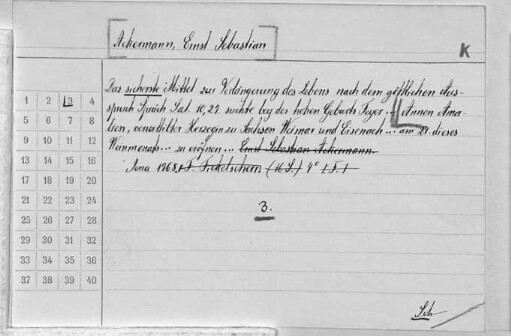 Ackermann, Ernst Sebastian
K
Das sicherste Mittel zur Verlängerung des Lebens nach dem göttlichen Aus-
spruch Spruch Sal. 10, 27. suchte bey der hohen Geburts Feyer ... Annen Ama-
lien, verwittibter Herzogin zu Sachsen Weimar und Eisenach ... am 24. dieses
Weinmonats ... zu eröfnen ... Ernst Sebastian Ackermann.
Jena 1768. (16 S.) 4°
3.
Sch
1 2 3 4
5 6 7 8
9 10 11 12
13 14 15 16
17 18 19 20
21 22 23 24
25 26 27 28
29 30 31 32
33 34 35 36
37 38 39 40